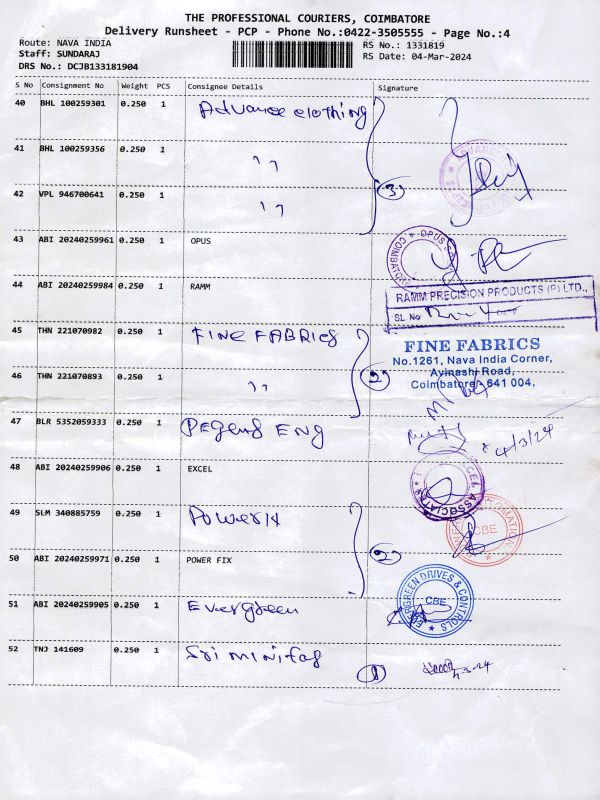 THE PROFESSIONAL COURIERS, COIMBATORE
Delivery Runsheet - PCP - Phone No.:0422-3505555 - Page No.:4
Route: NAVA INDIA
RS No.: 1331819
Staff: SUNDARAJ
RS Date: 04-Mar-2024
DRS No.: DCJB133181904
S No Consignment No Weight PCS Consignee Details Signature
40 BHL 100259301 0.250 1 Advance clothing
41 BHL 100259356 0.250 1 ,,
42 VPL 946700641 0.250 1 ,, 3
43 ABI 20240259961 0.250 1 OPUS
OPUS
COIMBATORE
44 ABI 20240259984 0.250 1 RAMM
RAMM PRECISION PRODUCTS (P) LTD.,
SL No
45 THN 221070982 0.250 1 FINE FABRICS
FINE FABRICS
No.1261, Nava India Corner,
Avinashi Road,
Coimbatore - 641 004.
46 THN 221070893 0.250 1 ,, 2
47 BLR 5352059333 0.250 1 ENG
4/3/24
48 ABI 20240259906 0.250 1 EXCEL
EXCEL ASSOCIATES
49 SLM 340885759 0.250 1
AUTOMATION
CBE
50 ABI 20240259971 0.250 1 POWER FIX 2
51 ABI 20240259905 0.250 1 Evergreen
EVERGREEN DRIVES & CONTROLS
CBE
52 TNJ 141609 0.250 1 Sri 1
4-3-24